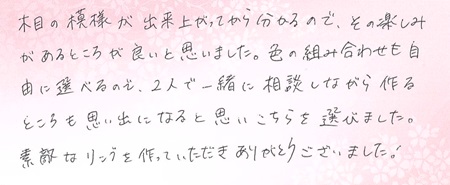 木目の模様が出来上がってから分かるので、その楽しみ
があるところが良いと思いました。色の組み合わせも自
由に選べるので、2人で一緒に相談しながら作る
ところも思い出になると思いこちらを選びました。
素敵なリングを作っていただきありがとうございました!